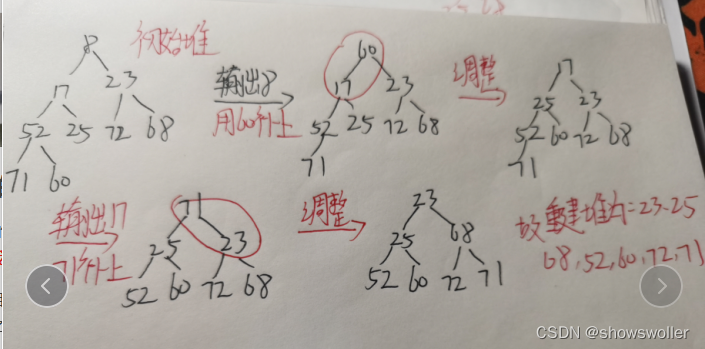 8 初始堆
17 23
52 25 72 68
71 60
输出8
用60补上
60
17 23
52 25 72 68
71
调整
17
25 23
52 60 72 68
71
输出17
71补上
71
25 23
52 60 72 68
调整
23
25 68
52 60 72 71
故重建堆为:23.25
68,52,60,72,71
CSDN @showswoller